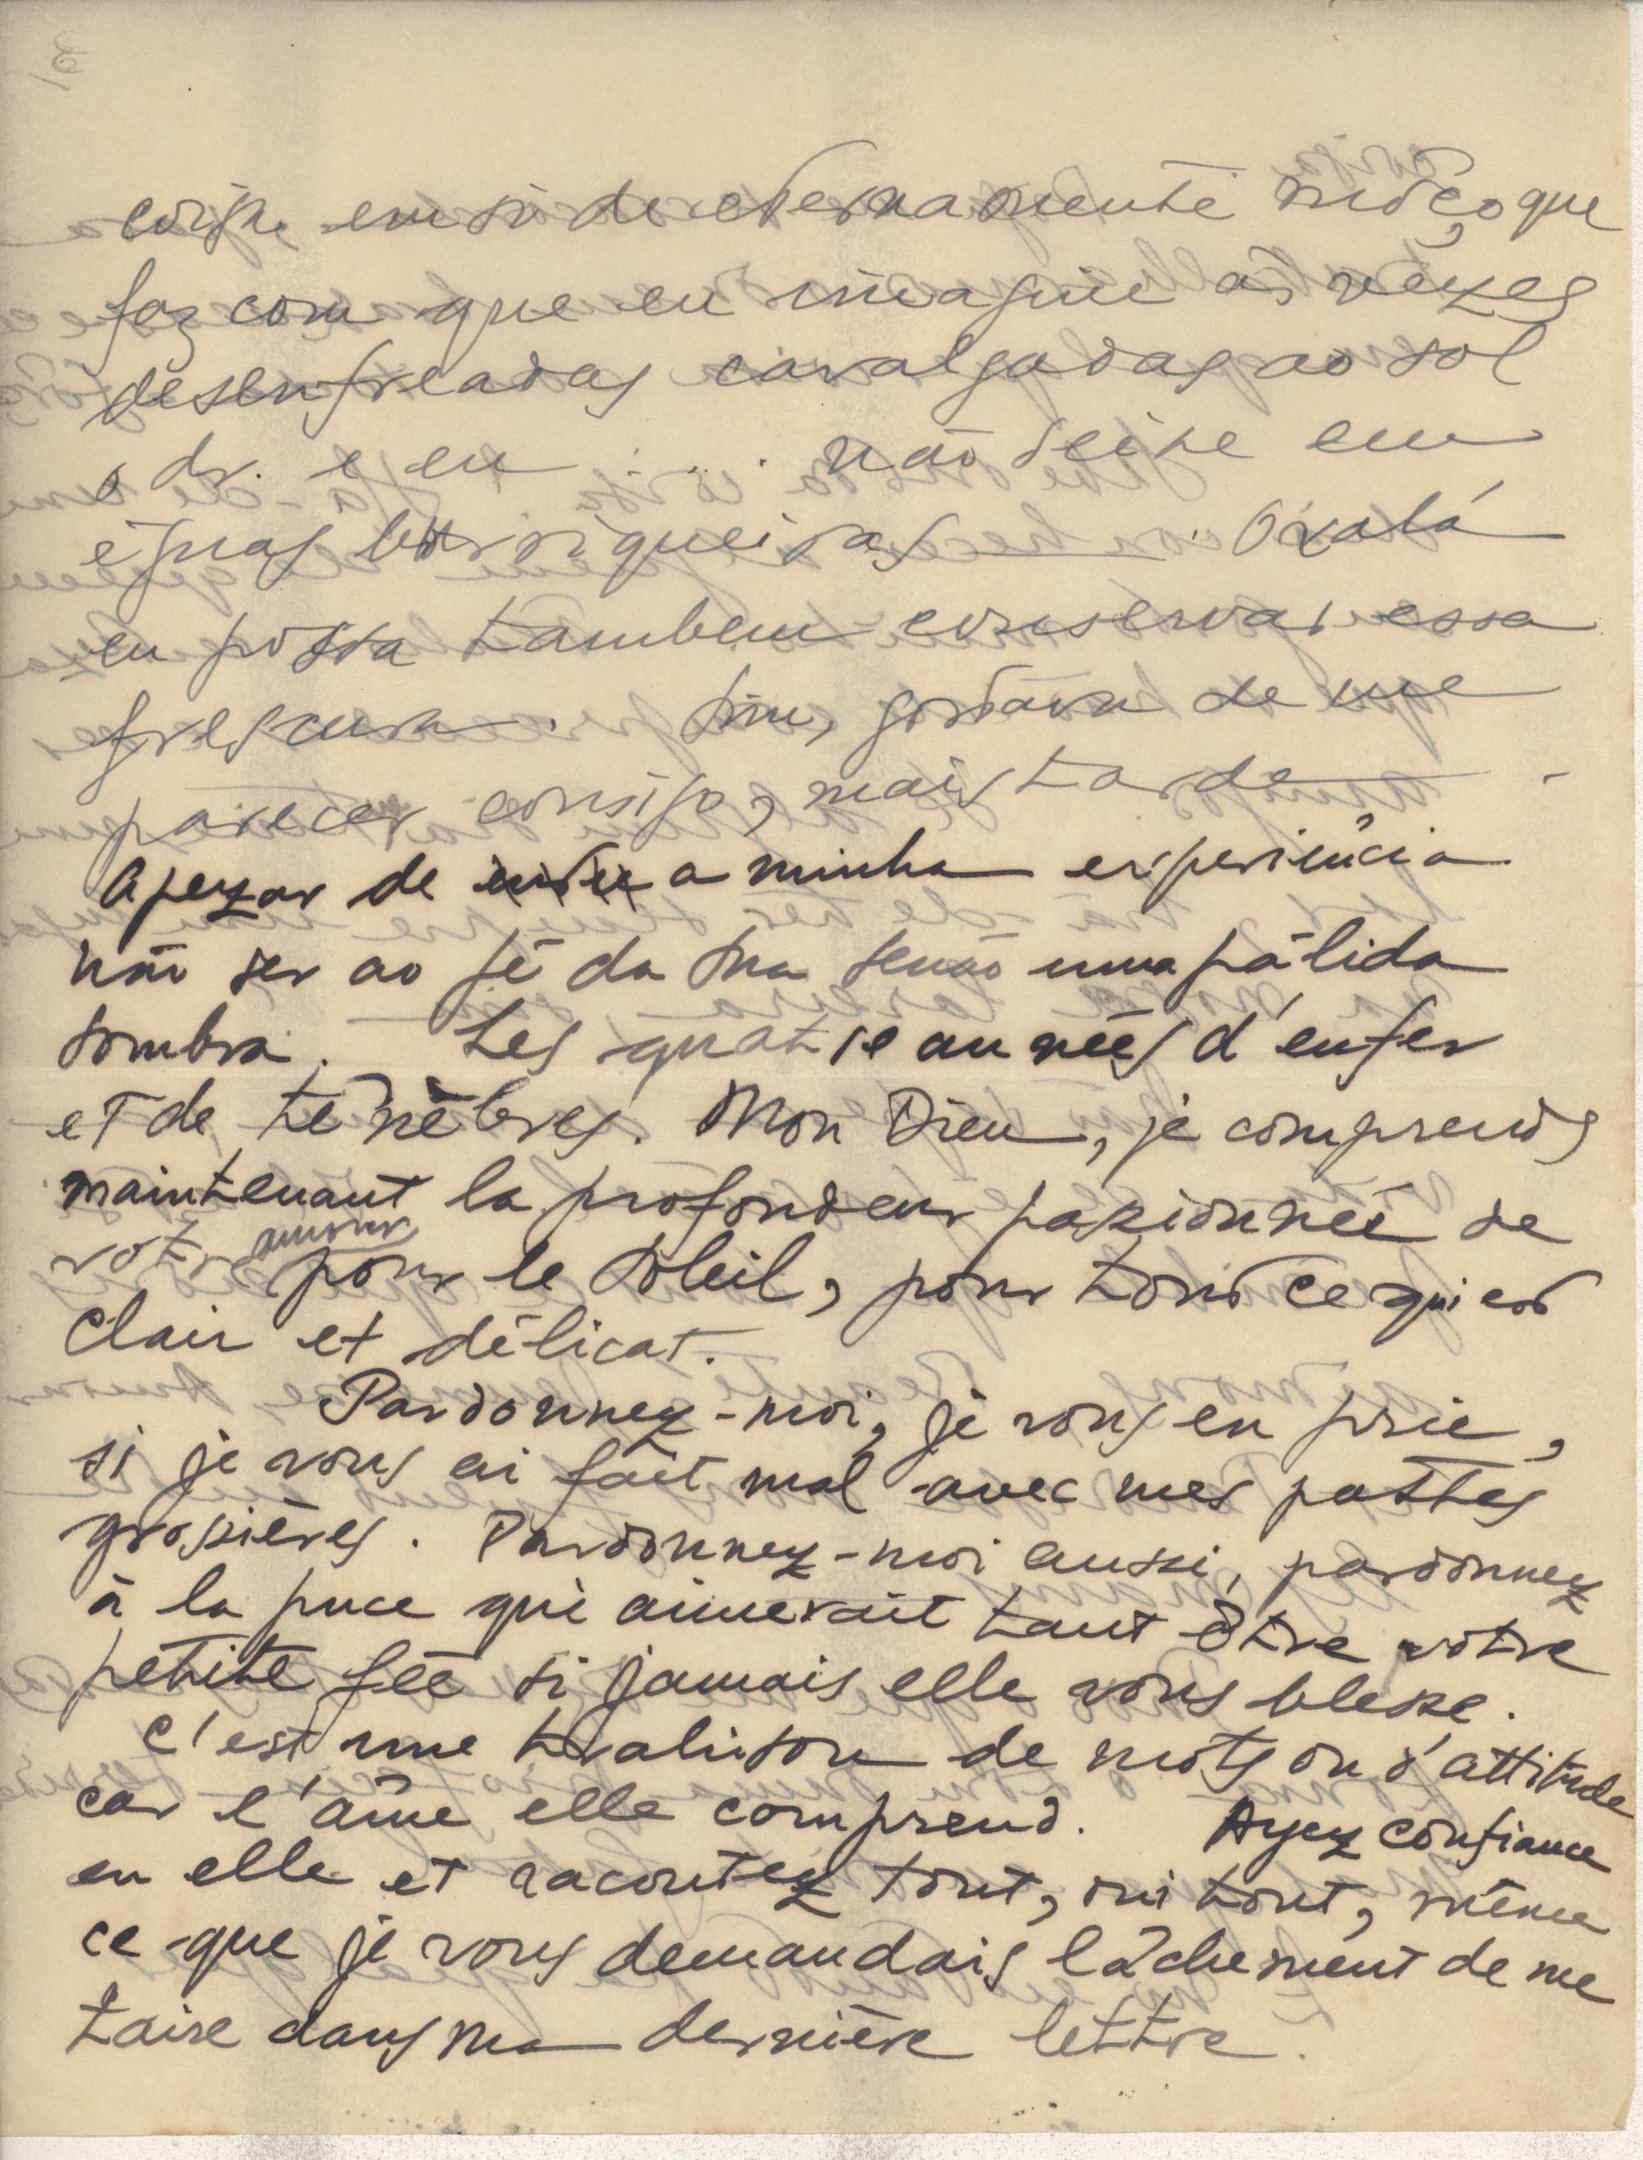 coisa em si de eternamente môço que
faz com que eu imagine ás vezes
desenfreadas cavalgadas ao sol
o dr. e eu . . . . não sei se em
éguas borriqueiras. Oxalá
eu possa tambem conservar essa
frescura. Sim, gostava de me
parecer consigo, mais tarde.
Apezar de a minha experiência
não ser ao pé da sua senão uma pálida
sombra. Les quatre années d'enfer
et de ténèbres. Mon Dieu, je comprends
maintenant la profondeur passionnée de
votre amour pour le soleil, pour tout ce qui est
clair et délicat.
Pardonnez-moi, je vous en prie,
si je vous ai fait mal avec mes pattes
grossières. Pardonnez-moi aussi, pardonnez
à la puce qui aimerait tant être votre
petite fée si jamais elle vous blesse.
C'est une trahison de mots ou d'attitude
car l'âme elle comprend. Ayez confiance
en elle et racontez tout, oui tout, même
ce que je vous demandais lâchement de me
taire dans ma dernière lettre.